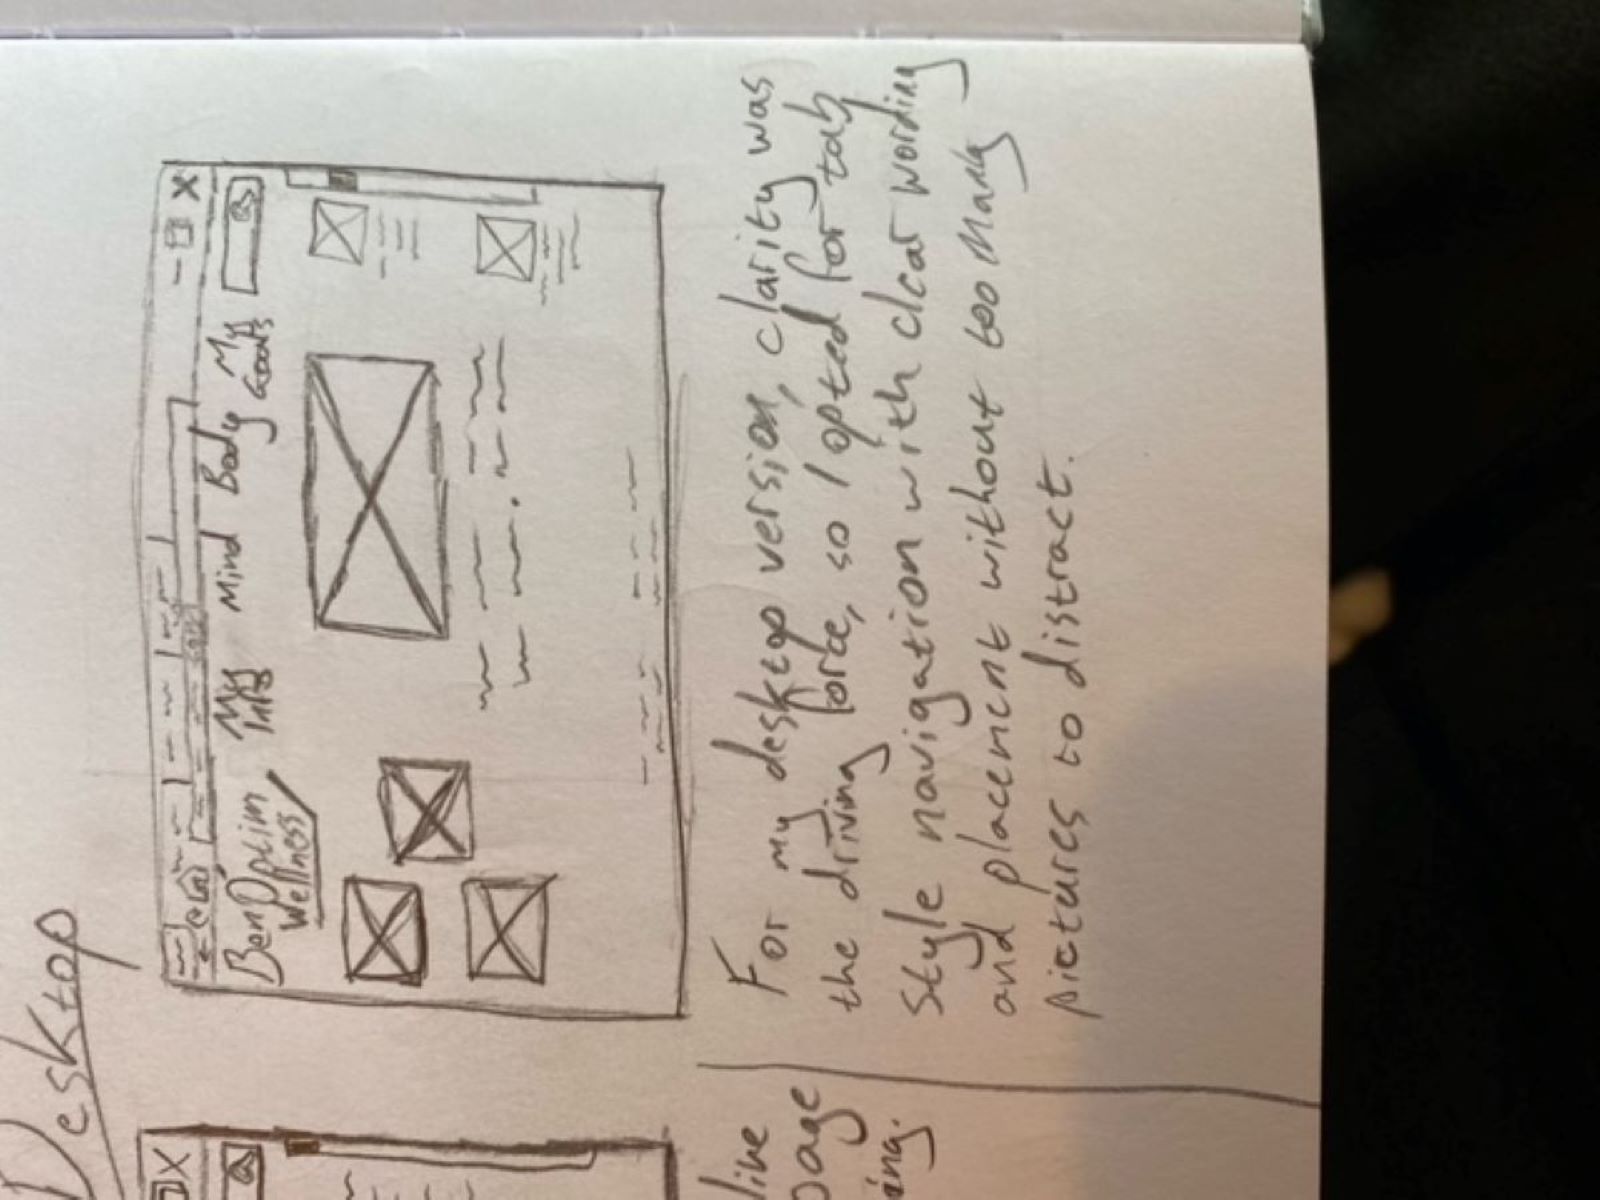 Desktop
BenOptim
Wellness
My
Info
Mind
Body
My
Goals
live
page
ing.
For my desktop version, clarity was
the driving force, so I opted for tab
style navigation with clear wording
and placement without too many
pictures to distract.